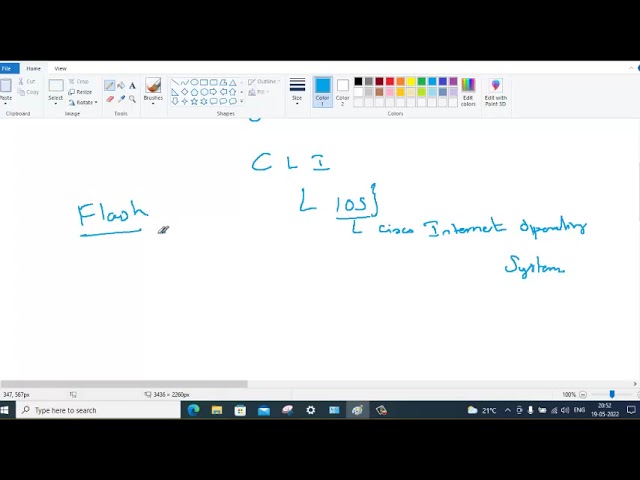 File Home View
Cut
Copy
Paste
Clipboard
Select
Crop
Resize
Rotate
Image
A
Tools
Brushes
Shapes
Outline
Fill
Size
Color 1
Color 2
Colors
Edit colors
Edit with Paint 3D
C L I
L IOS}
Flash
L cisco Internet Operating
System
347, 567px
3436 × 2260px
100%
Type here to search
21°C
ENG
20:52
19-05-2022